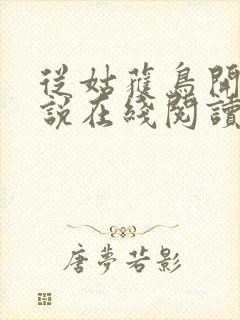 從姑蘿鳥開
說在綫閱讀
唐夢若影